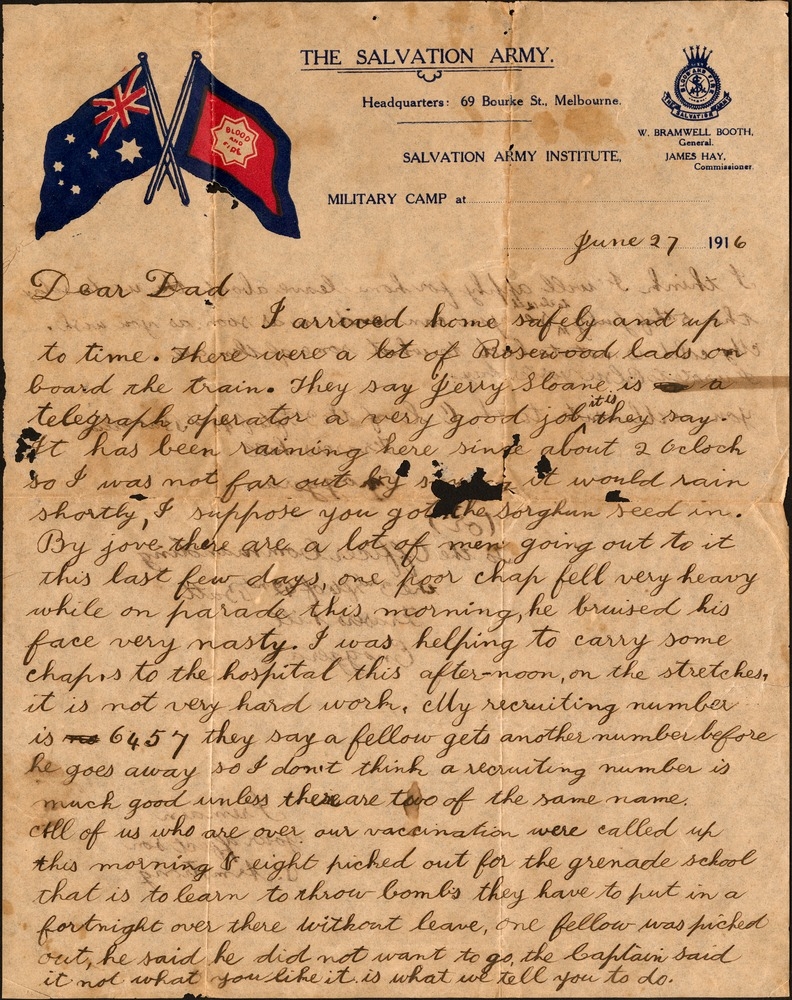 THE SALVATION ARMY.
Headquarters: 69 Bourke St., Melbourne.
SALVATION ARMY INSTITUTE,
MILITARY CAMP at
BLOOD AND FIRE
BLOOD AND FIRE
THE SALVATION ARMY
W. BRAMWELL BOOTH,
General.
JAMES HAY,
Commissioner.
June 27 1916
Dear Dad
I arrived home safely and up
to time. There were a lot of Rosewood lads on
board the train. They say Jerry Sloane is a
telegraph operator a very good job it is they say.
It has been raining here sinse about 2 Oclock
so I was not far out by it would rain
shortly, I suppose you got the sorghun seed in.
By jove there are a lot of men going out to it
this last few days, one poor chap fell very heavy
while on parade this morning, he bruised his
face very nasty. I was helping to carry some
chaps to the hospital this after-noon, on the stretches,
it is not very hard work. My recruiting number
is 6457 they say a fellow gets another number before
he goes away so I don't think a recruiting number is
much good unless there are two of the same name.
All of us who are over our vaccination were called up
this morning & eight picked out for the grenade school
that is to learn to throw bombs they have to put in a
fortnight over there without leave, one fellow was picked
out, he said he did not want to go, the Captain said
it not what you like it is what we tell you to do.